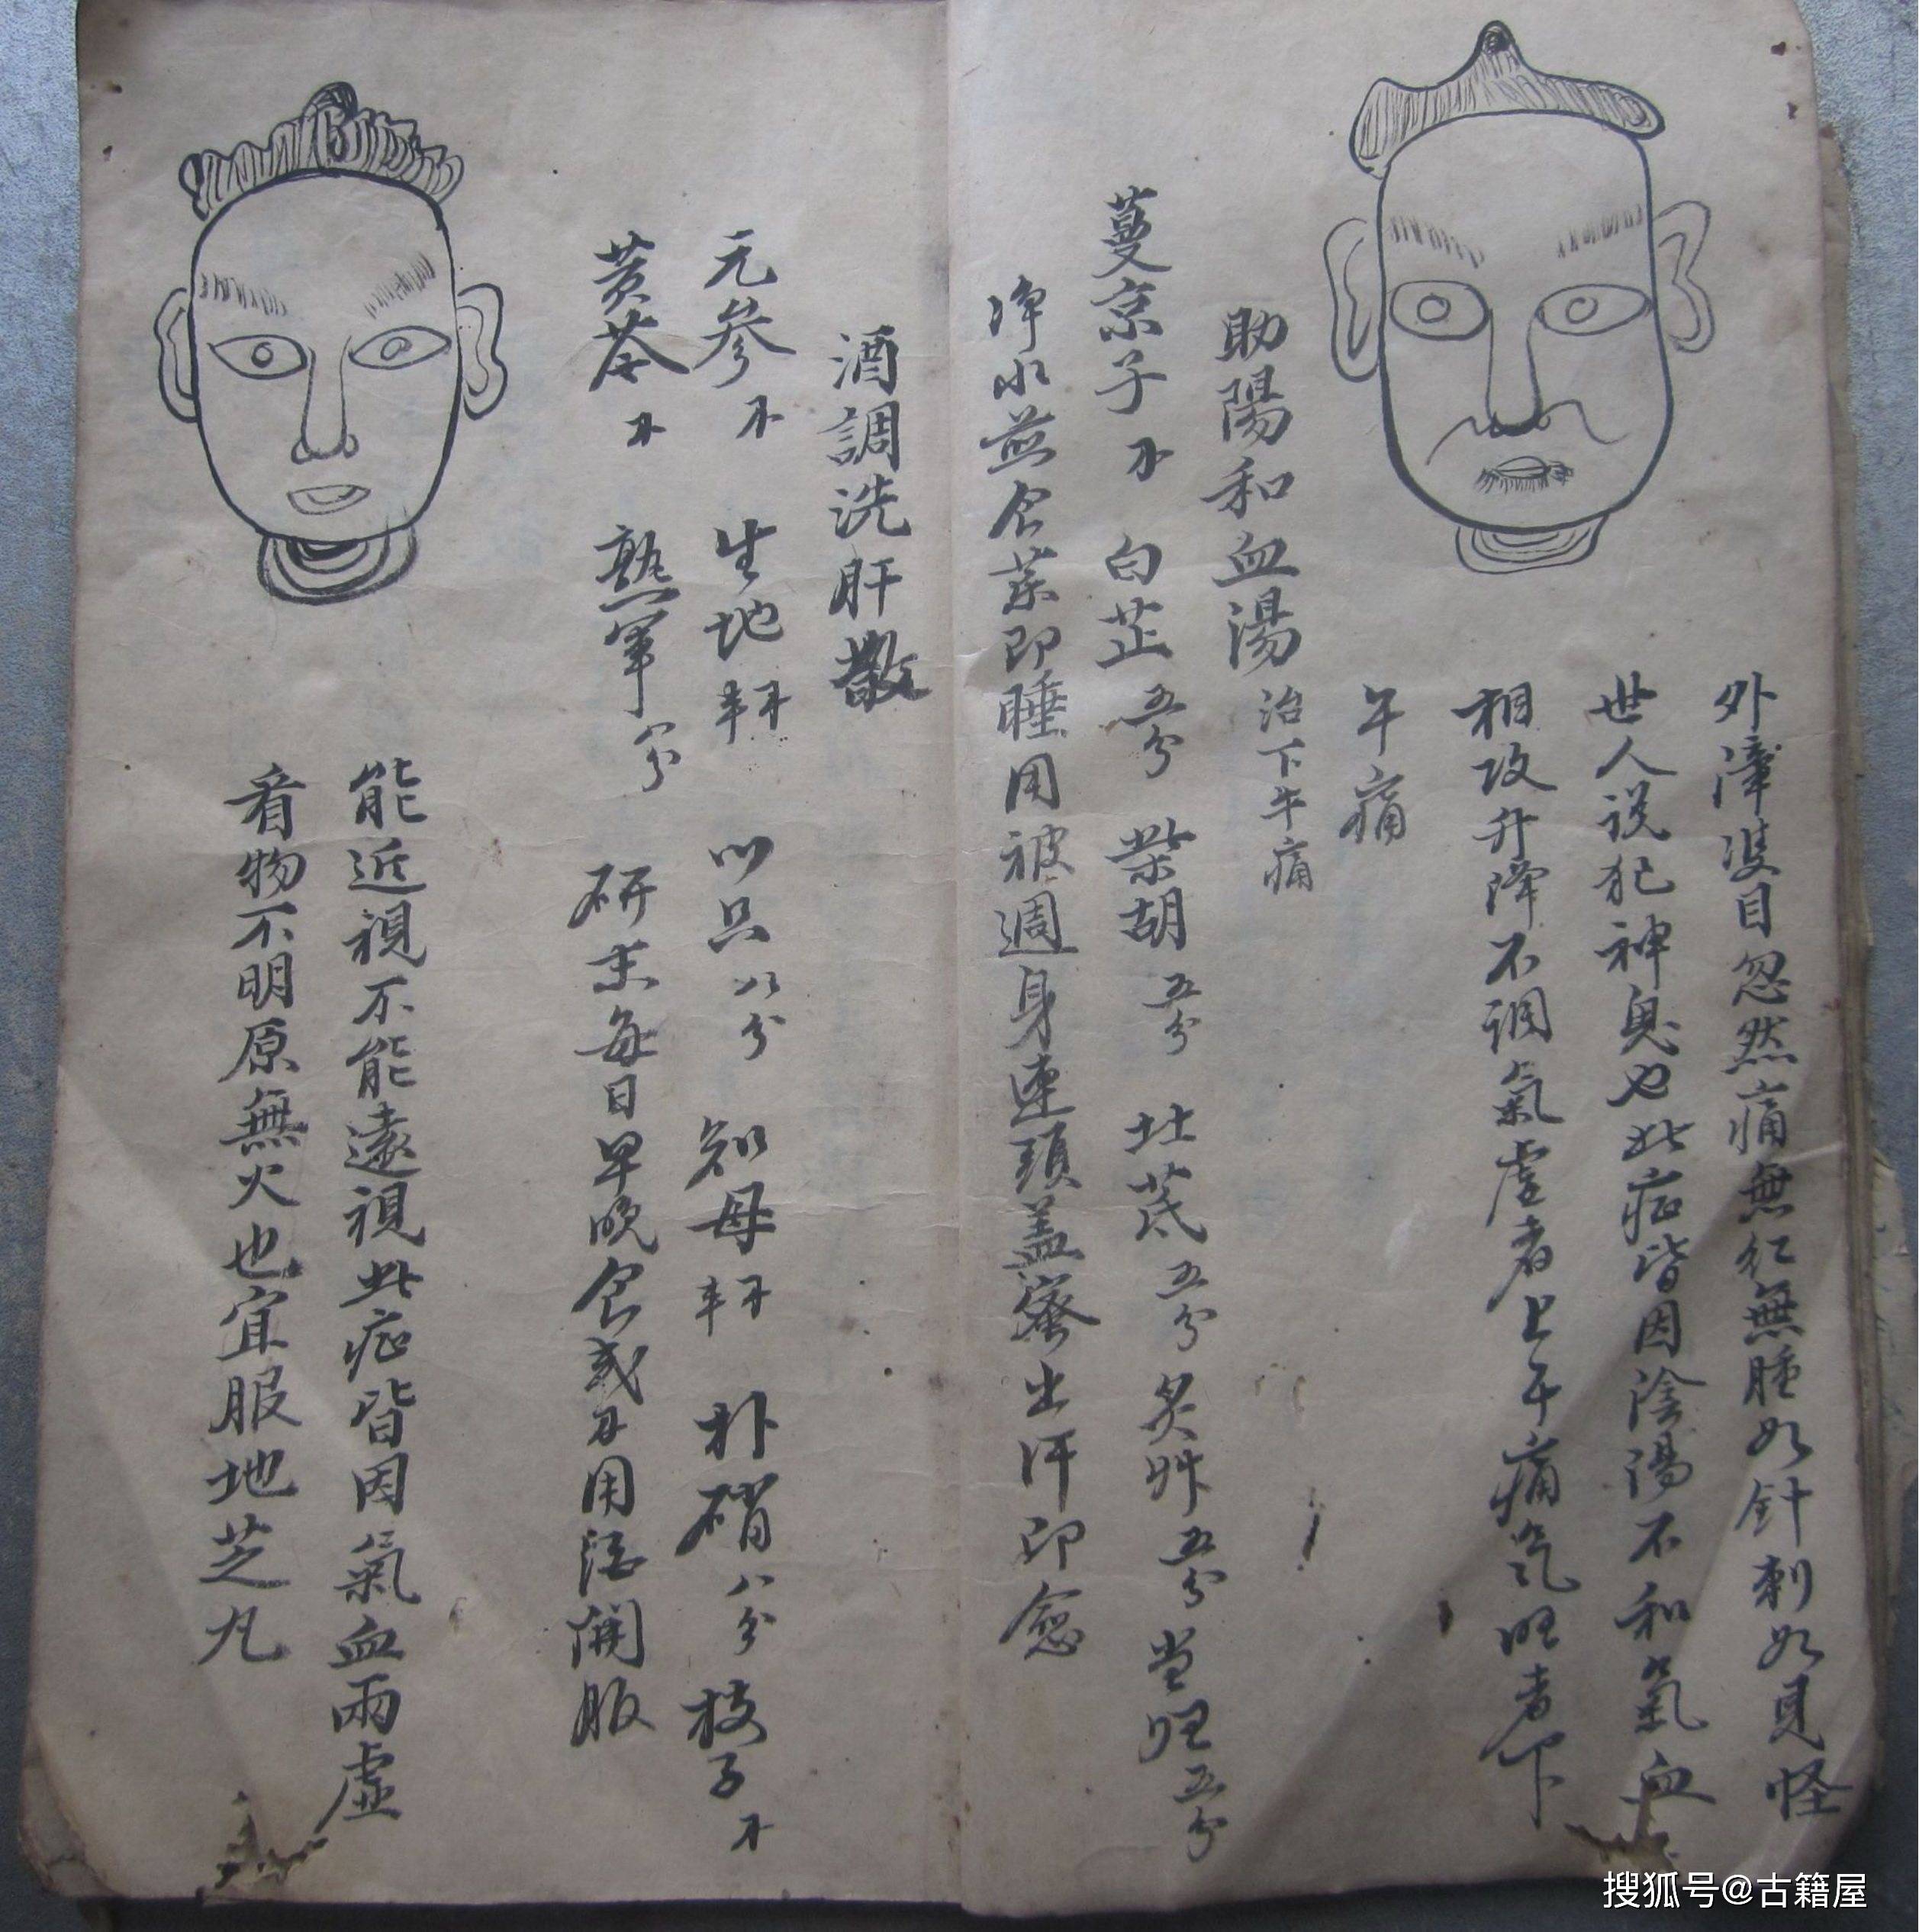 外瘴婆目忽然痛無紅無腫如針刺如見怪
世人说犯神鬼也此症皆因陰陽不和氣血
相攻升降不調氣虚者上午痛氣旺者下
午痛
助陽和血湯 治下午痛
蔓京子 白芷五分 柴胡五分 北芪五分 炙艸五分 当归五分
净水煎食菜即睡用被週身連頭盖密出汗即愈
酒調洗肝散
元參 生地 以只八分 知母 朴硝八分 枝子
黄芩 熟軍八分 研末每日早晚食或用酒開服
能近視不能遠視此症皆因氣血兩虛
看物不明原無火也宜服地芝丸
搜狐号@古籍屋